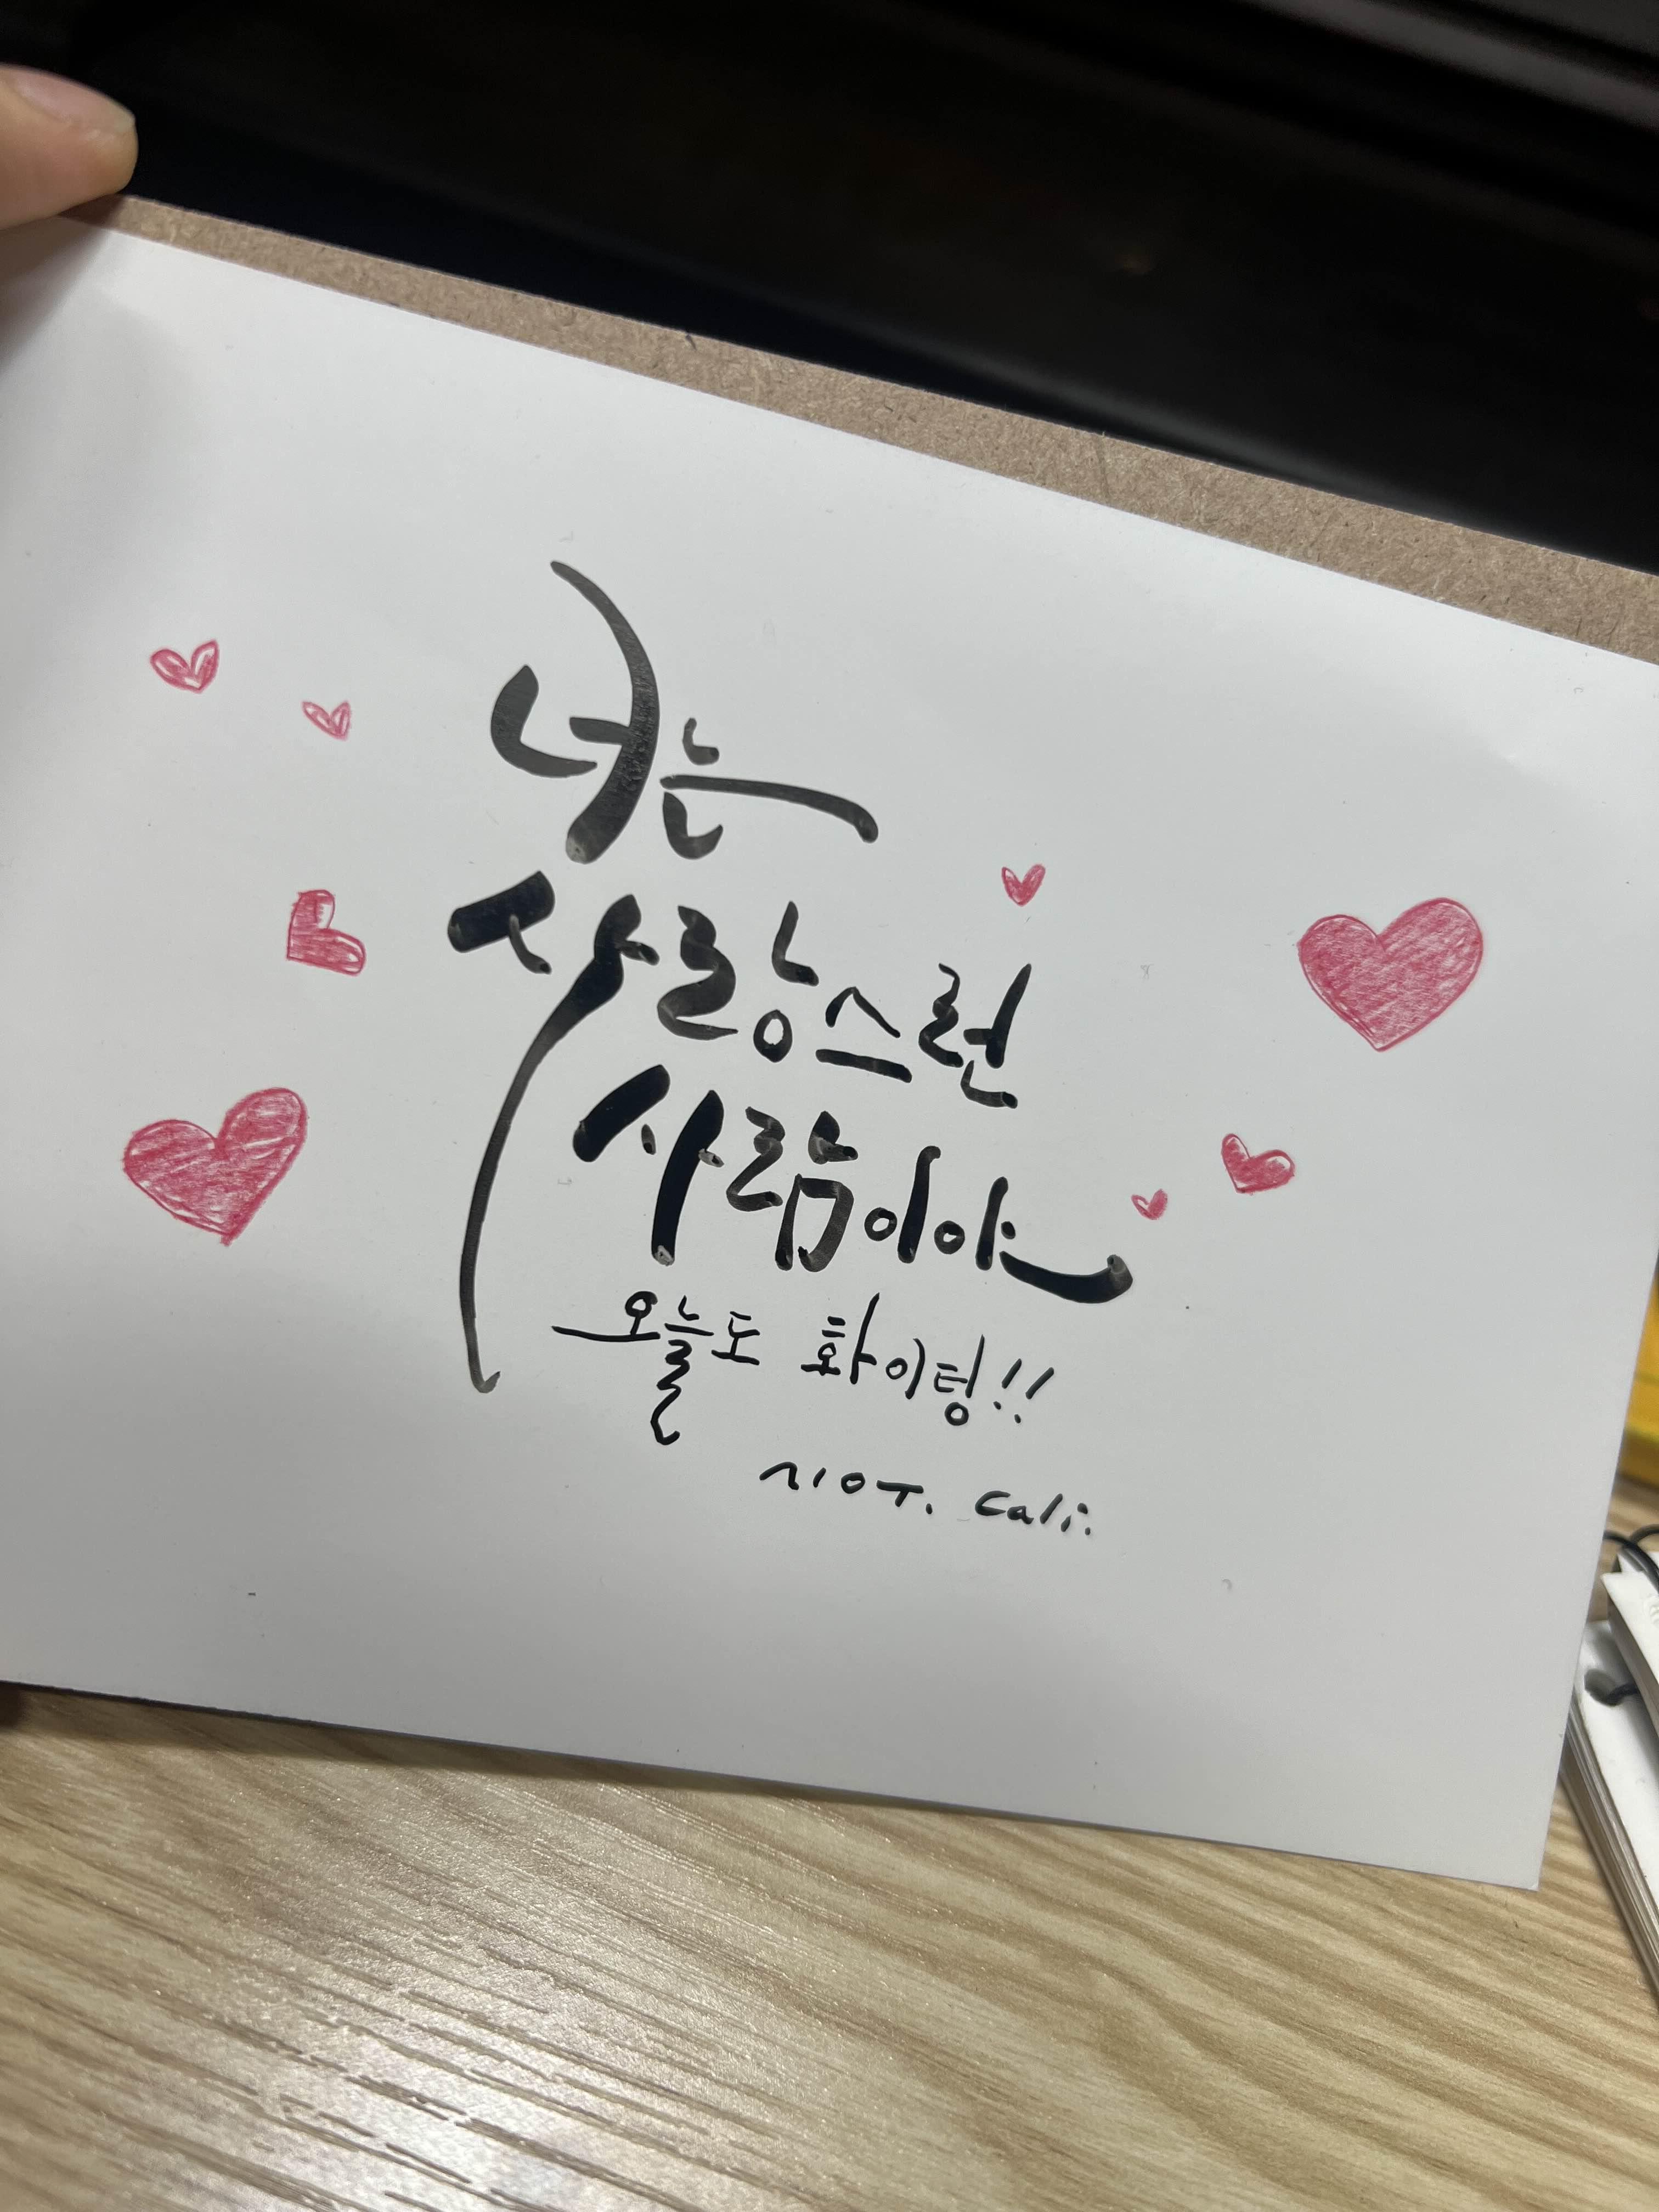 너는
사랑스런
사람이야
오늘도 화이팅!!
시오T. Cali.